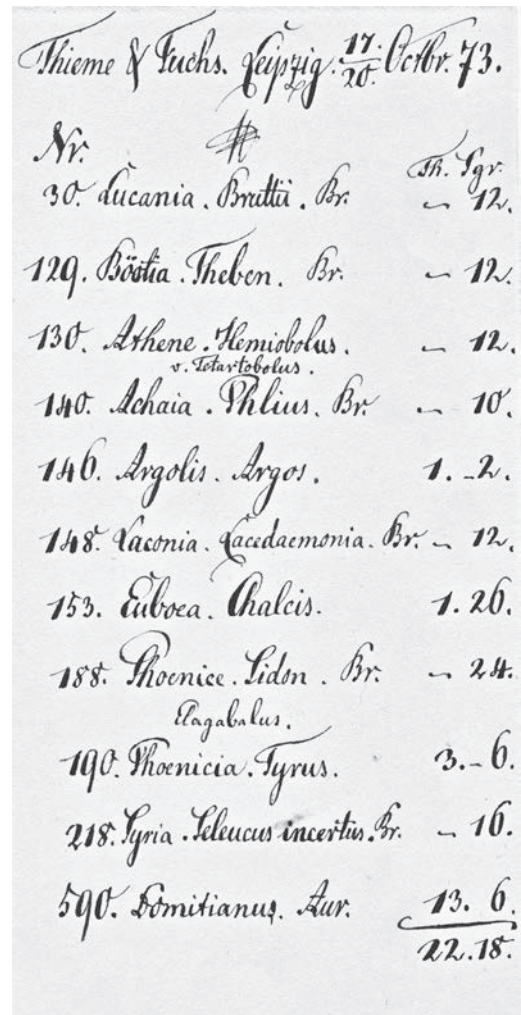 Thieme & Fuchs. Leipzig. 17./20. Octbr. 73.
Nr. Th. Sgr.
30. Lucania. Bruttii. Br. – 12.
129. Böotia. Theben. Br. – 12.
130. Athene. Hemiobolus. – 12.
v. Tetartobolus.
140. Achaia. Phlius. Br. – 10.
146. Argolis. Argos. 1. – 2.
148. Laconia. Lacedaemonia. Br. – 12.
153. Euboea. Chalcis. 1. 26.
188. Phoenice. Sidon. Br. – 24.
Elagabalus.
190. Phoenicia. Tyrus. 3. – 6.
218. Syria. Seleucus incertus. Br. – 16.
590. Domitianus. Aur. 13. 6.
22. 18.